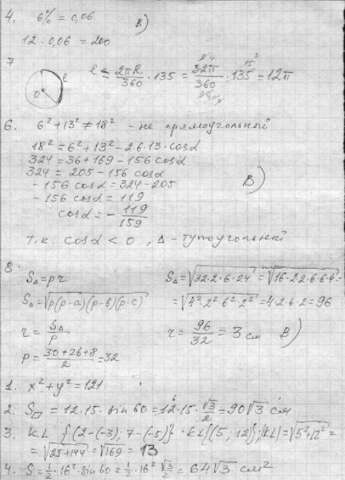 4. 6% = 0,06
В)
12 · 0,06 = 200
7
l = 2πR/360 · 135 = 32π/360 · 135 = 12π
6. 6² + 13² ≠ 18² - не прямоугольный
18² = 6² + 13² - 2·6·13·cosα
324 = 36 + 169 - 156 cosα
324 = 205 - 156 cosα
- 156 cosα = 324 - 205
- 156 cosα = 119
В)
cosα = - 119/159
т.к. cosα < 0, Δ - тупоугольный
8
S△ = pr
S△ = √p(p-a)(p-b)(p-c)
r = S△/p
p = (30+26+8)/2 = 32
S△ = √32·2·6·24 = √16·2·2·6·6·4 =
= √4²·2²·6²·2² = 4·2·6·2 = 96
r = 96/32 = 3 см В)
1. x² + y² = 121
2. S▱ = 12·15·sin 60 = 12·15·√3/2 = 90√3 см
3. KL {2-(-3); 7-(-5)} KL{5; 12}; |KL| = √5²+12² =
= √25+144 = √169 = 13
4. S = 1/2·16²·sin 60 = 1/2·16²·√3/2 = 64√3 см²